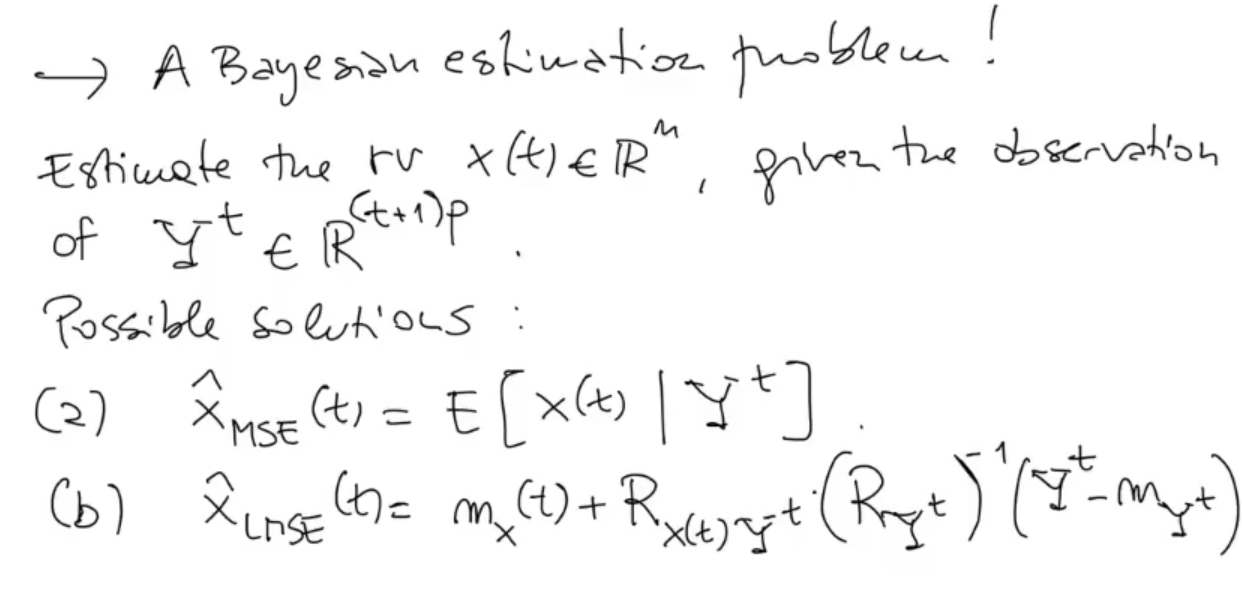 → A Bayesian estimation problem!
Estimate the rv x(t) ∈ ℝⁿ, given the observation
of Yᵗ ∈ ℝ^{(t+1)p}.
Possible solutions:
(a) x̂_{MSE}(t) = E[x(t) | Yᵗ].
(b) x̂_{LMSE}(t) = m_x(t) + R_{x(t)Yᵗ} · (R_{Yᵗ})⁻¹ (Yᵗ - m_{Yᵗ})